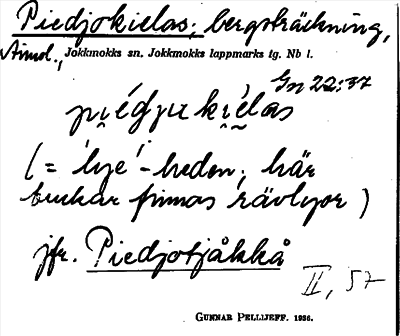 Piedjokielas; bergsträckning,
Aimol., Jokkmokks sn. Jokkmokks lappmarks tg. Nb l.
Gn 22:37
piédju kìelas
(= 'lye'-heden; här
brukar finnas rävlyor)
jfr. Piedjotjåkkå
II, 57
GUNNAR PELLIJEFF. 1936.